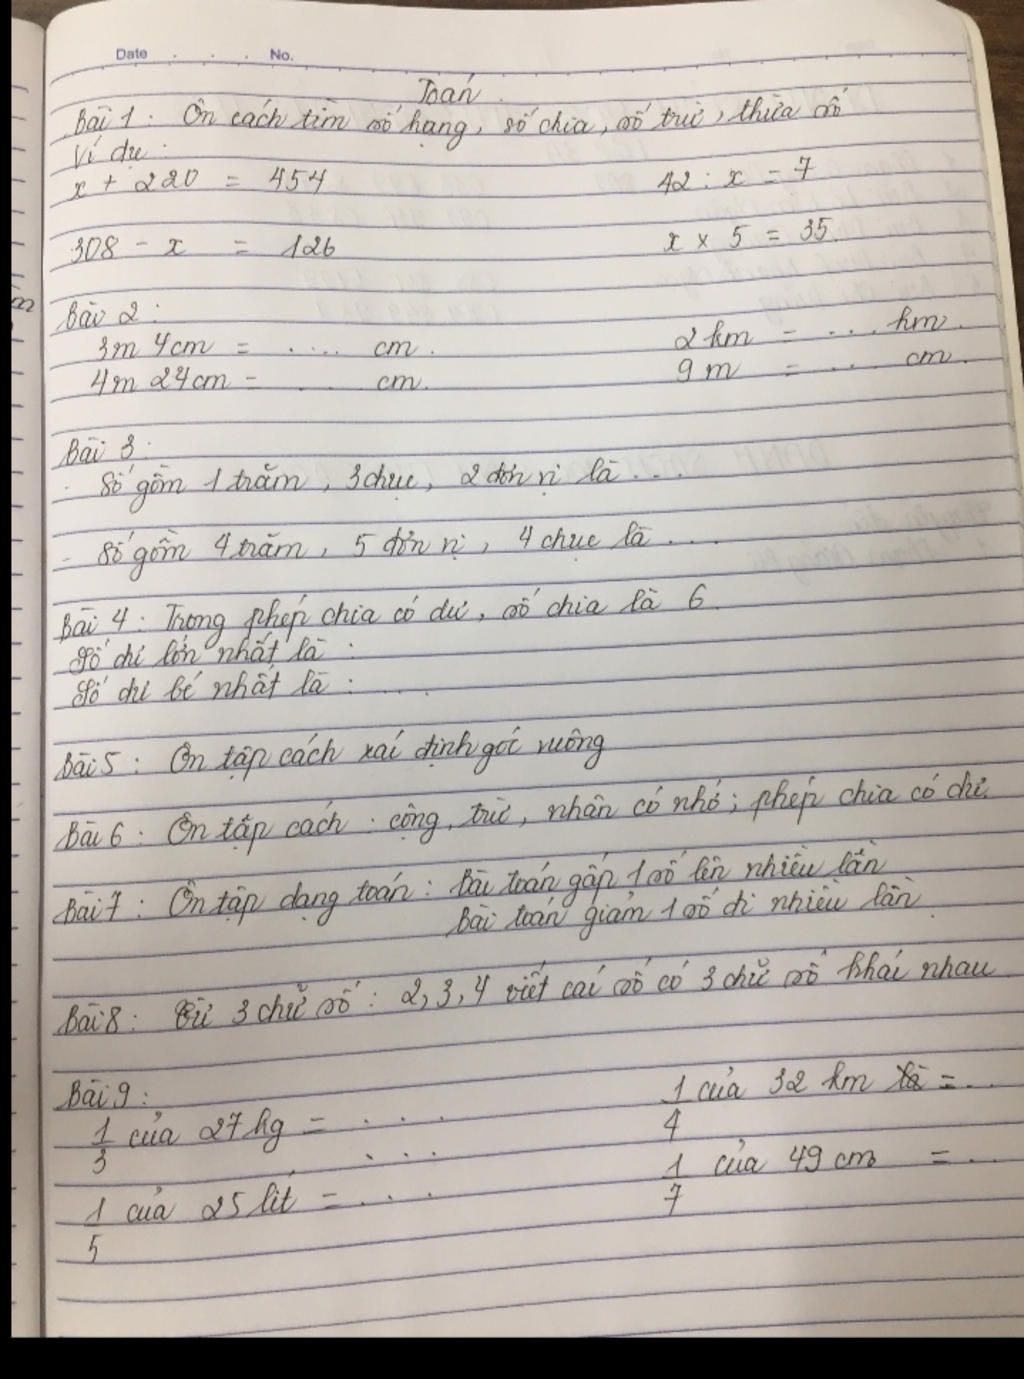 Date No.
Toán
Bài 1 : Ôn cách tìm số hạng, số chia, số trừ, thừa số
Ví dụ :
x + 220 = 454 42 : x = 7
308 - x = 126 x × 5 = 35
Bài 2 :
3m 4cm = ..... cm. 2 km = ... hm.
4m 24cm = ..... cm. 9 m = ... cm.
Bài 3 :
- Số gồm 1 trăm, 3 chục, 2 đơn vị là ...
- Số gồm 4 trăm, 5 đơn vị, 4 chục là ...
Bài 4 : Trong phép chia có dư, số chia là 6.
Số dư lớn nhất là :
Số dư bé nhất là : ....
Bài 5 : Ôn tập cách xác định góc vuông
Bài 6 : Ôn tập cách : cộng, trừ, nhân có nhớ ; phép chia có dư.
Bài 7 : Ôn tập dạng toán : Bài toán gấp 1 số lên nhiều lần
Bài toán giảm 1 số đi nhiều lần.
Bài 8 : Từ 3 chữ số : 2, 3, 4 viết các số có 3 chữ số khác nhau
Bài 9 :
1/3 của 27 kg = .... 1/4 của 32 km là = ...
1/5 của 25 lít = .... 1/7 của 49 cm = ...